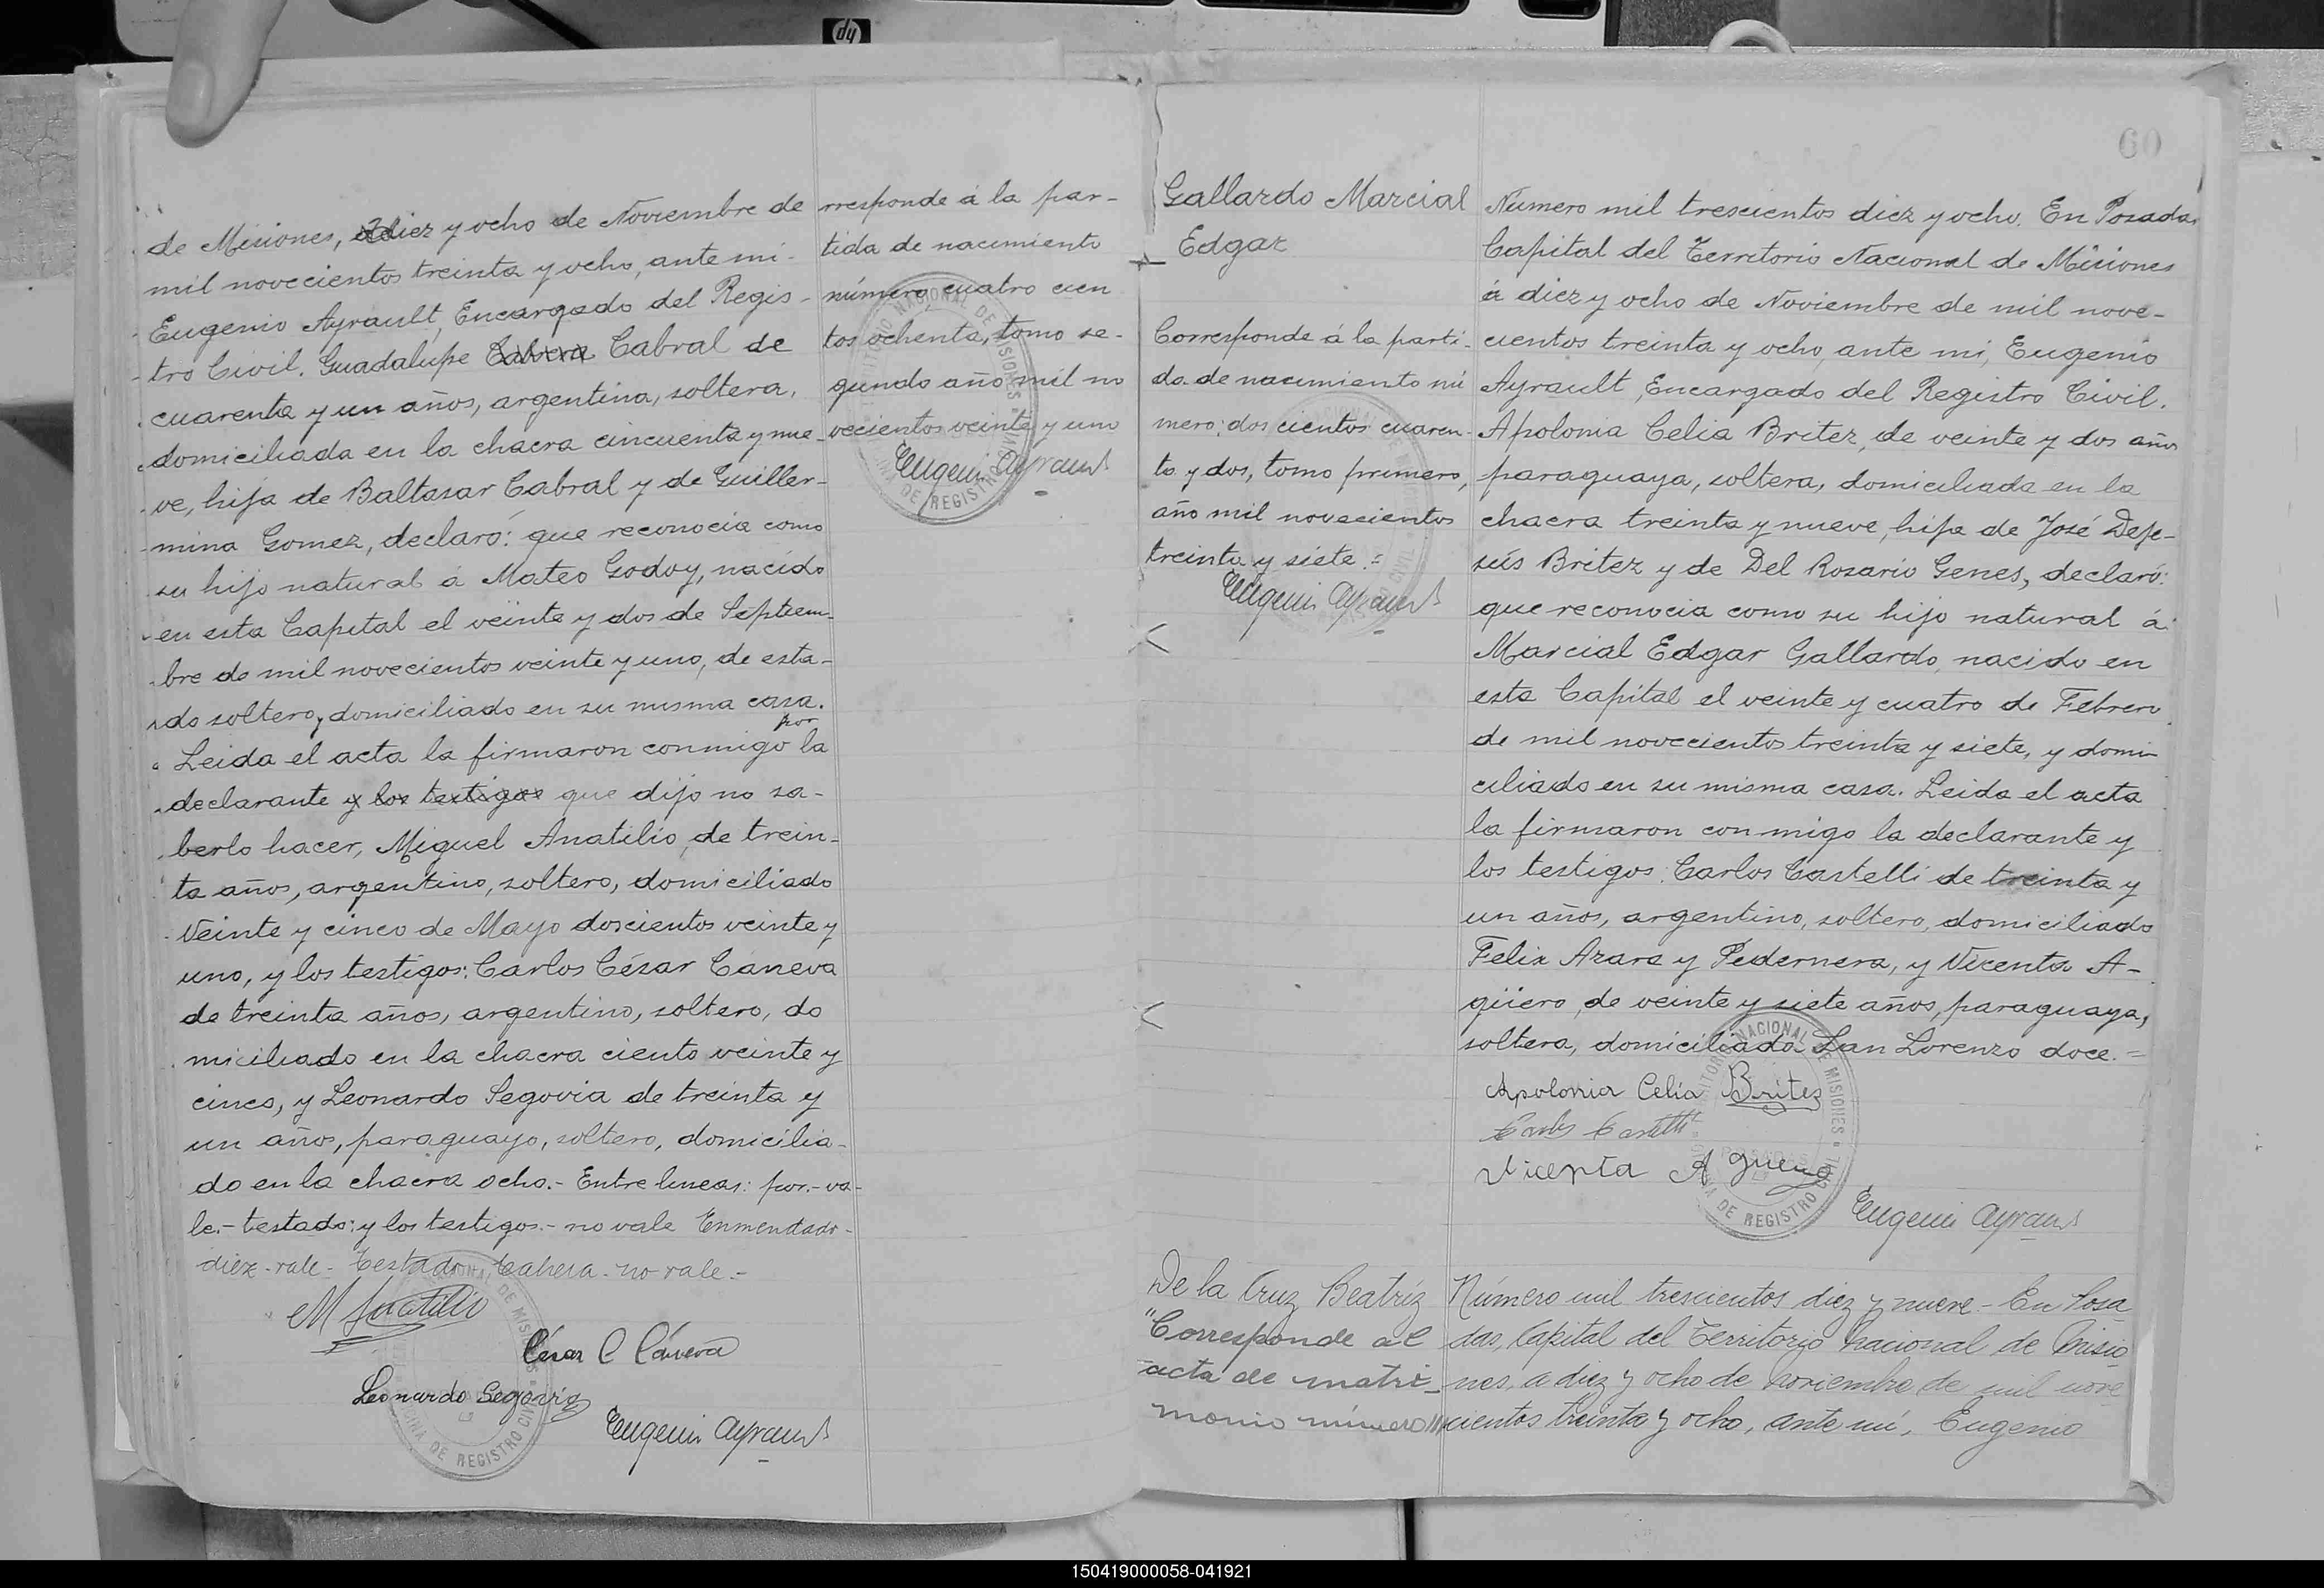 de Misiones, diez y ocho de Noviembre de
mil novecientos treinta y ocho, ante mi
Eugenio Ayrault, Encargado del Regis-
tro Civil. Guadalupe Cabrera Cabral de
cuarenta y un años, argentina, soltera,
domiciliada en la chacra cincuenta y nue-
ve, hija de Baltasar Cabral y de Guiller-
mina Gomez, declaró: que reconocia como
su hijo natural á Mateo Godoy, nacido
en esta Capital el veinte y dos de Septiem-
bre de mil novecientos veinte y uno, de esta-
do soltero, domiciliado en su misma casa.
por
Leida el acta la firmaron conmigo la
declarante y los testigos que dijo no sa-
berlo hacer, Miguel Anatilio, de trein-
ta años, argentino, soltero, domiciliado
Veinte y cinco de Mayo doscientos veinte y
uno, y los testigos: Carlos César Caneva
de treinta años, argentino, soltero, do
miciliado en la chacra ciento veinte y
cinco, y Leonardo Segovia de treinta y
un años, paraguayo, soltero, domicilia-
do en la chacra ocho.- Entre lineas: por.- va-
le.- testado: y los testigos.- no vale Enmendado-
diez - vale - Testado - Cabrera - no vale.-
M Anatilio
César C Cáneva
Leonardo Segovia
Eugenio Ayrault
rresponde á la par-
tida de nacimiento
número cuatro cien
tos ochenta, tomo se-
gundo año mil no
vecientos veinte y uno
Eugenio Ayrault
TERRITORIO NACIONAL DE MISIONES
OFICINA DE REGISTRO CIVIL
60
Gallardo Marcial
Edgar
Corresponde á la parti-
da de nacimiento nú
mero: dos cientos cuaren-
ta y dos, tomo primero,
año mil novecientos
treinta y siete.=
Eugenio Ayrault
Número mil trescientos diez y ocho. En Posadas
Capital del Territorio Nacional de Misiones
á diez y ocho de Noviembre de mil nove-
cientos treinta y ocho, ante mi, Eugenio
Ayrault, Encargado del Registro Civil.
Apolonia Celia Britez, de veinte y dos años
paraguaya, soltera, domiciliada en la
chacra treinta y nueve, hija de José Deje-
sús Britez y de Del Rosario Genes, declaró:
que reconocia como su hijo natural á
Marcial Edgar Gallardo, nacido en
esta Capital el veinte y cuatro de Febrero
de mil novecientos treinta y siete, y domi-
ciliado en su misma casa. Leida el acta
la firmaron con migo la declarante y
los testigos: Carlos Castelli de treinta y
un años, argentino, soltero, domiciliado
Felix Azara y Pedernera, y Vicenta A-
güero, de veinte y siete años, paraguaya,
soltera, domiciliada San Lorenzo doce.=
Apolonia Celia Britez
Carlos Castelli
Vicenta Aguero
Eugenio Ayrault
TERRITORIO NACIONAL DE MISIONES
POSADAS
OFICINA DE REGISTRO CIVIL
De la Cruz Beatríz
"Corresponde al
acta de matri-
monio número///
Número mil trescientos diez y nueve - En Posa
das, Capital del Territorio Nacional de Misio
nes, a diez y ocho de Noviembre de mil nove
cientos treinta y ocho, ante mí, Eugenio
150419000058-041921